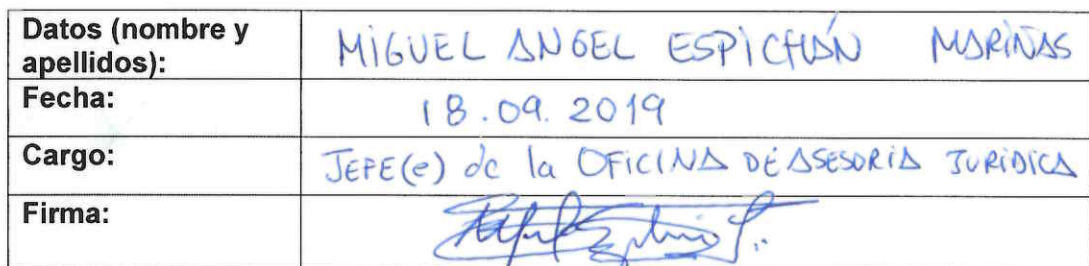 Datos (nombre y
apellidos):
MIGUEL ANGEL ESPICHÁN MARIÑAS
Fecha:
18.09.2019
Cargo:
JEFE(e) de la OFICINA DE ASESORIA JURIDICA
Firma: